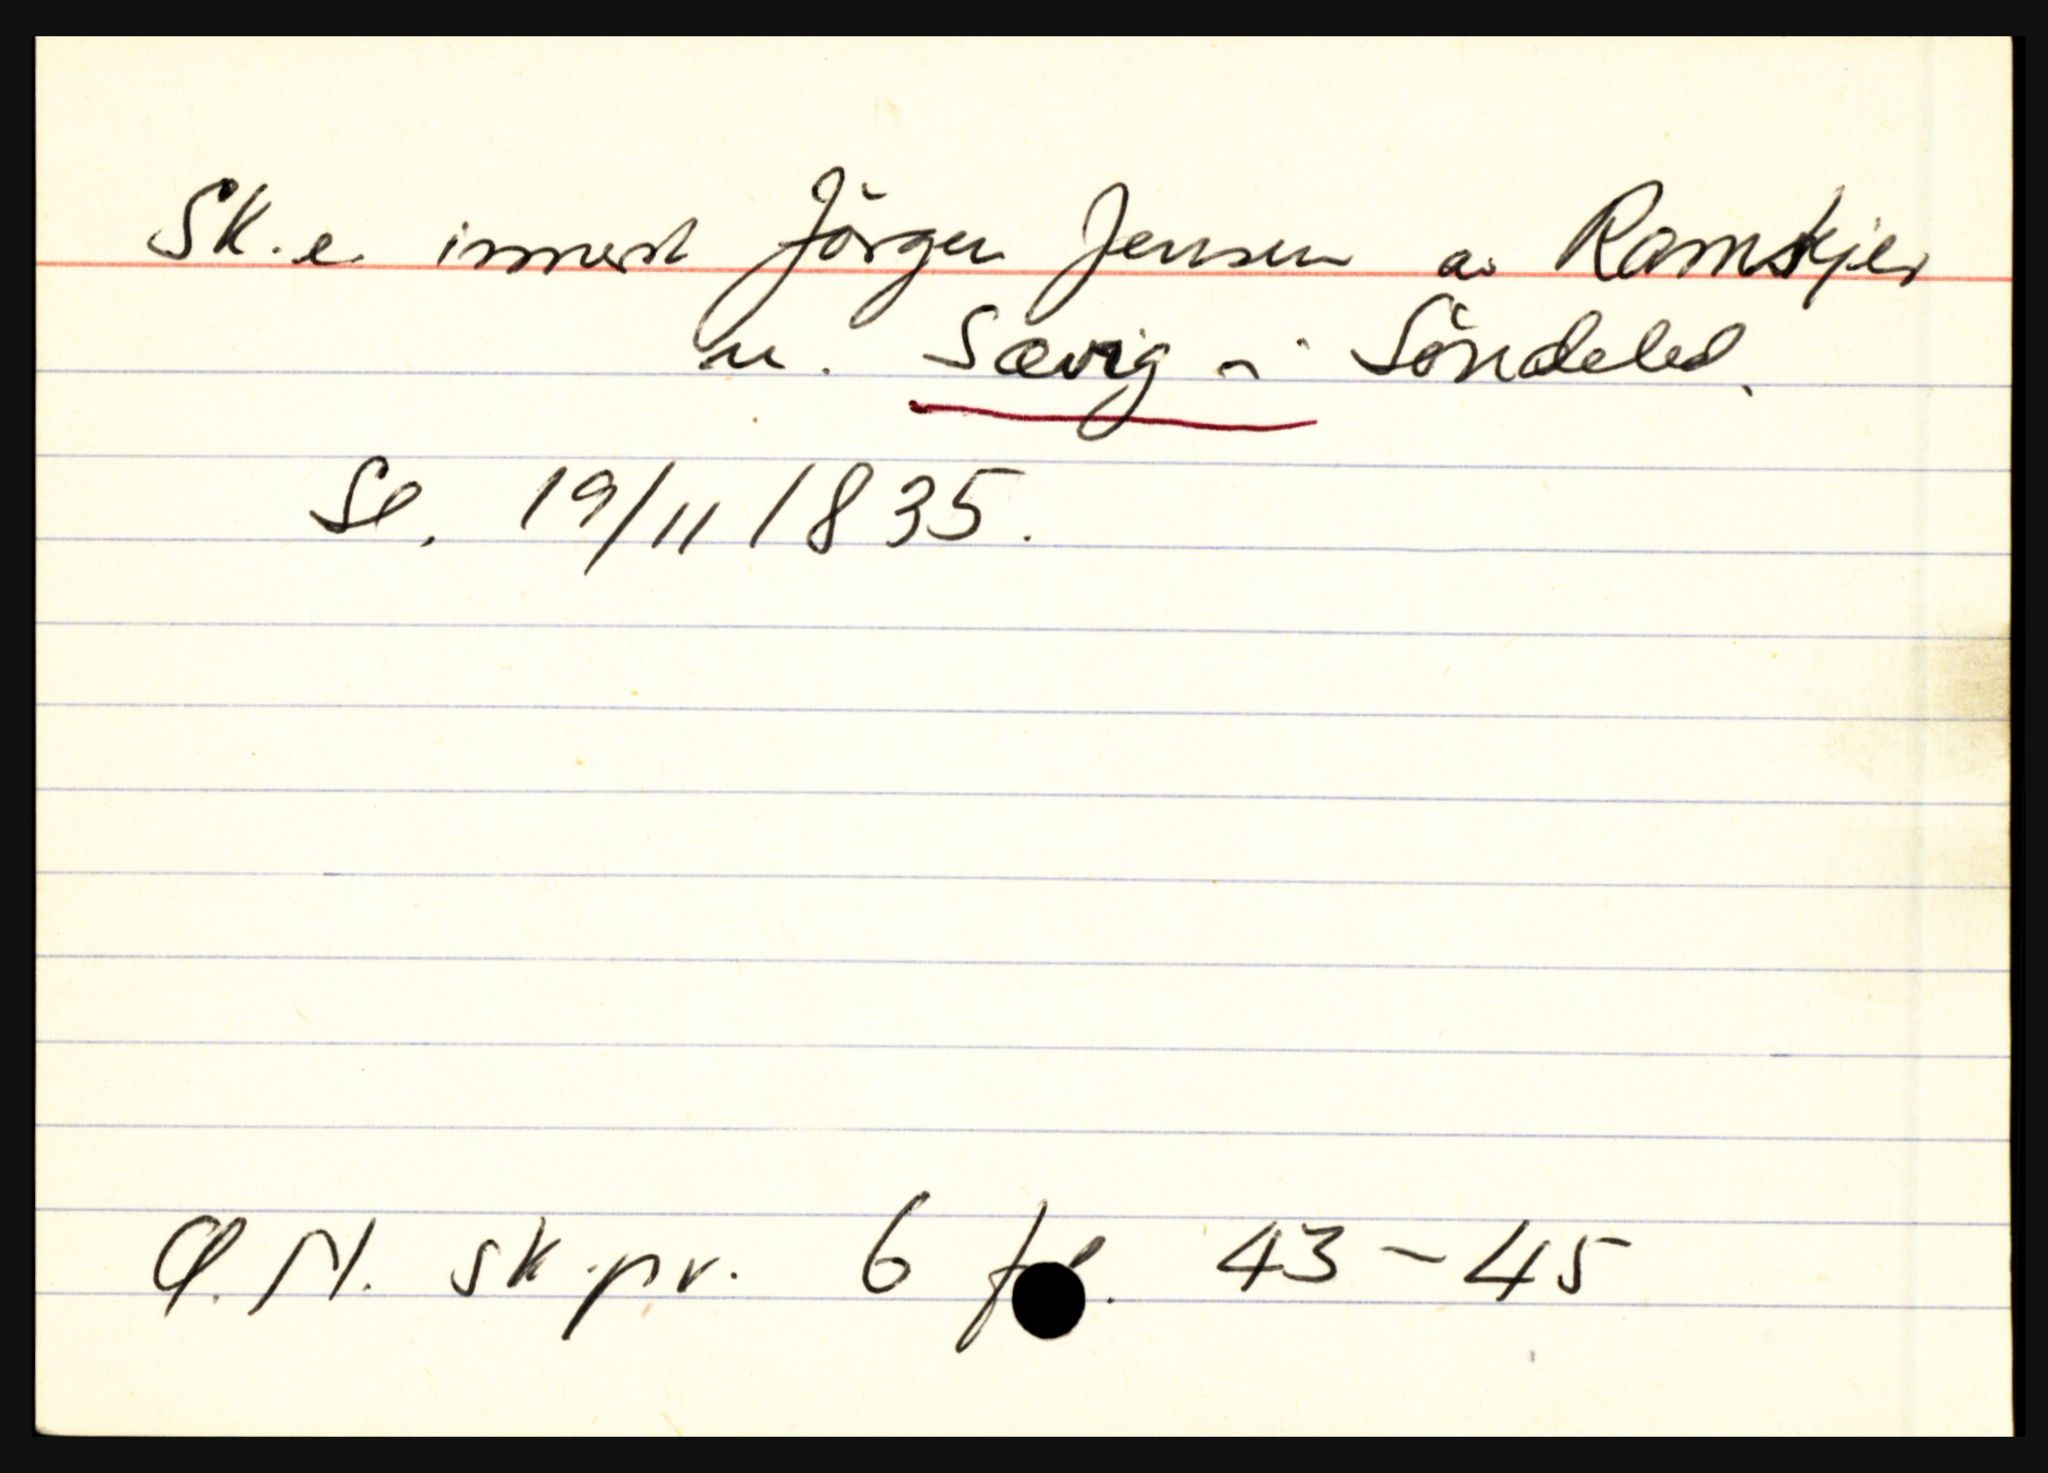 Sk. e. innerst Jörgen Jensen av Ramskjer
u. Sævig i Söndeled.
Sl. 19/11 1835.
Ø. N. sk.pr. 6 fol. 43-45